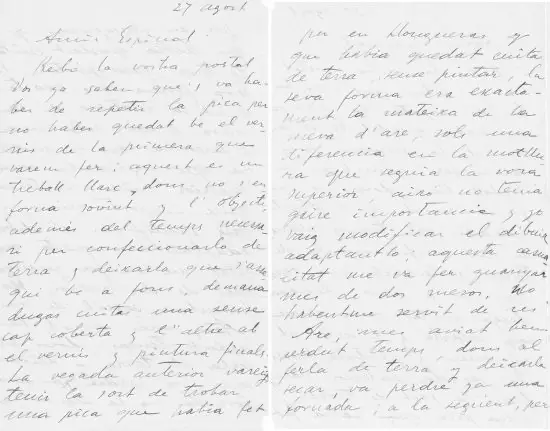 27 agost
Amic Espinal:
Rebo la vostra postal
Vos ja sabeu que, va ha-
ber de repetir la pica per
no haber quedat be el ver-
nis de la primera que
varem fer; aquest es un
treball llarc, donc no s'en
forna sovint y l'objecte,
ademes del temps necesa-
ri per confeccionarlo de
terra y deixarla que s'axu-
qui be a fons, demana
dugas cuitas una sense
cap coberta y l'altre ab
el vernis y pintura finals.
La vegada anterior vareig
tenir la sort de trobar
una pica que habia fet
per en Llongueras y
que habia quedat cuita
de terra, sense pintar, la
seva forma era exacta-
ment la mateixa de la
meva d'are, sols una
diferencia en la mottllu-
ra que seguia la vora
superior, aixo no tenia
gaire importancia y jo
vaig modificar el dibuix
adaptantlo; aquesta casua-
litat me va fer guanyar
mes de dos mesos. No
habentme servit de res
Are, mes aviat hem
perdut temps donc al
ferla de terra y deixarla
secar, va perdre ja una
fornada; a la seguent, per